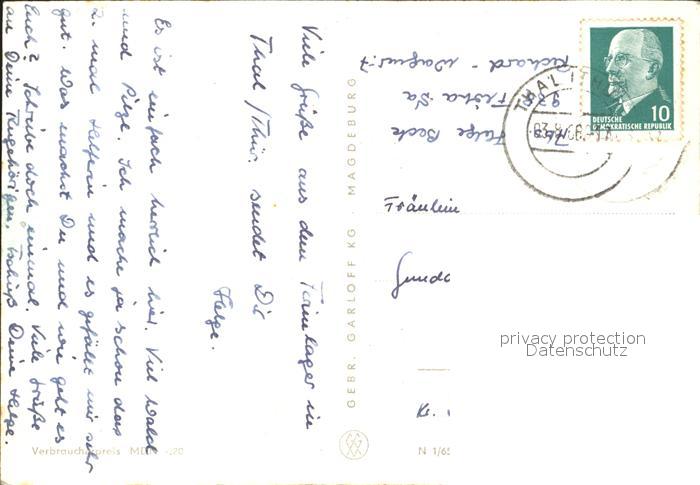 Viele Grüße aus dem Ferienlager in
Thal/Thür. sendet Dir
Helga.
Es ist einfach herrlich hier. Viel Wald
und Pilze. Ich mache ja schon das
2. mal Helferin und es gefällt mir sehr
gut. Was machst Du und wie geht es
Euch? Schreibe doch einmal. Viele Grüße
an Deine Angehörigen, tschüß Deine Helga.
GEBR. GARLOFF KG. MAGDEBURG
Verbraucherpreis MDN -,20
N 1/65
Richard - Wagner-
Flöha Sa
Beck
THAL (THÜR
DEUTSCHE
DEMOKRATISCHE REPUBLIK
10
Fräulein
privacy protection
Datenschutz